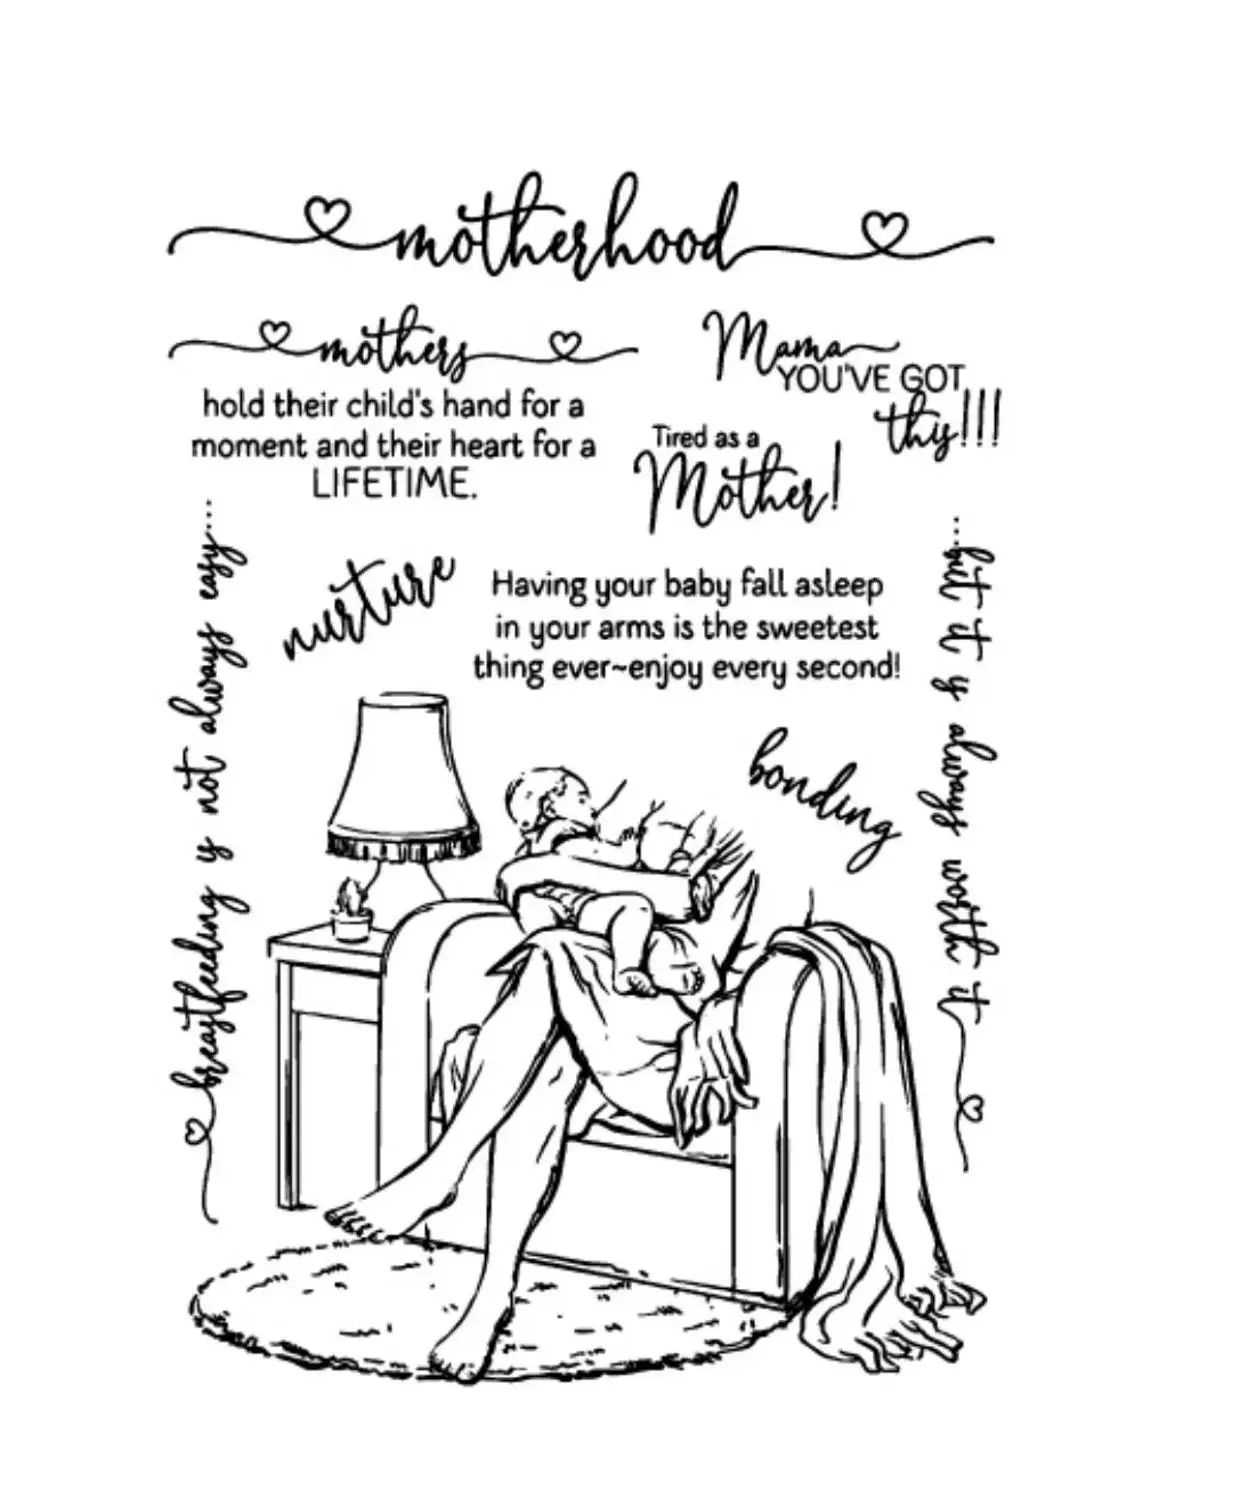 motherhood
mothers
hold their child's hand for a
moment and their heart for a
LIFETIME.
Mama
YOU'VE GOT
this!!!
Tired as a
Mother!
nurture
Having your baby fall asleep
in your arms is the sweetest
thing ever~enjoy every second!
bonding
breastfeeding is not always easy...
...but it is always worth it